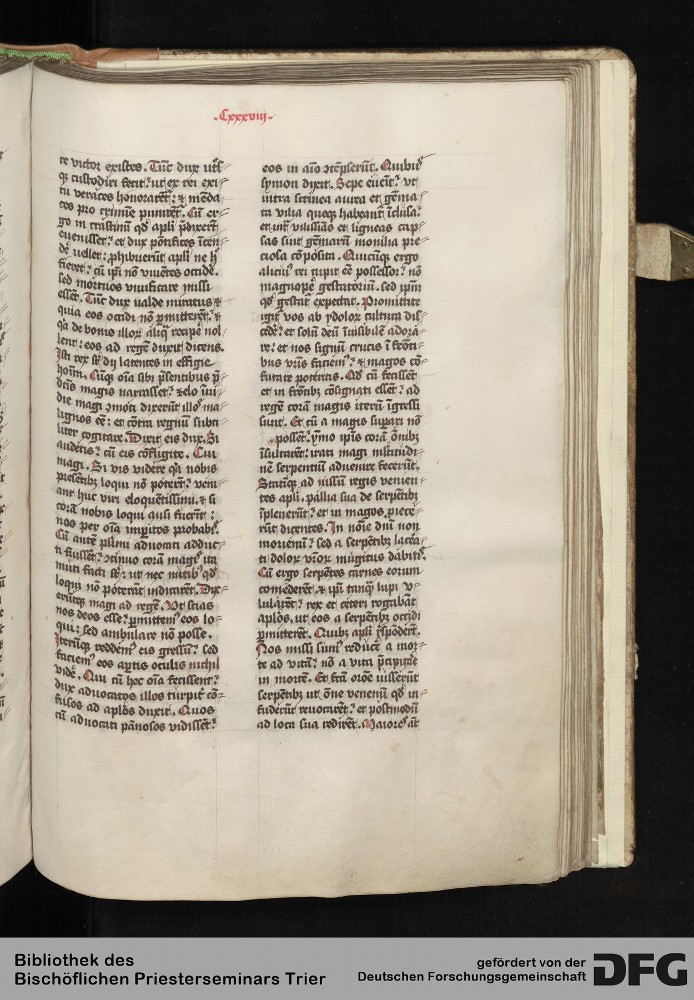 .Cxxxviij.
te victor existes. Tūc dux utͦsꝫ
qꝫ custodiri fecit: ut ex rei exi⸗
tu veraces honorarēt: ⁊ mēda
ces pro crimīe puniret. Cū er⸗
go in crastinū qd̕ apl̕i p̄dixerāt
euenisset: et dux pōtifices īcen⸗
dē uellet: ꝓhibuerūt apl̕i ne h̕
fieret: cū ip̄i nō viuētes occidē.
sed mortuos viuificare missi
essēt. Tūc dux ualde miratus ⁊
quia eos occidi nō ꝑmitterēt: ⁊
q̄a de bonis illoꝝ aliq̄ recipē nol
lent: eos ad regē duxit dicens.
Isti rex st̕ dij latentes in effigie
hoīm. Cūqꝫ oīa sibi p̄sentibus p̄
dc̄is magis narrasset: ⁊ zelo īui⸗
die magi ꝯmoti dixerūt illos ma
lignos eē: et cōtra regnū subti
liter cogitare. Dixit eis dux. Si
audetis: cū eis cōfligite. Cui
magi. Si vis vidēre q̄a nobis
p̄sentibꝫ loqui nō poterūt: veni⸗
ant huc viri eloquētissimi. ⁊ si
corā nobis loqui ausi fuerīt:
nos per oīa imꝑitos probabis.
Cū autē plimi aduocati adduc⸗
ti fuissēt: ꝯtinuo corā magis ita
muti facti st̕: ut nec nutibꝫ qd̕
loqui nō poterāt indicarēt. Dix⸗
erūtqꝫ magi ad regē. Vt scias
nos deos esse: ꝑmittemꝰ eos lo⸗
qui: sed ambulare nō posse.
Iterūqꝫ reddemꝰ eis gressū: sed
faciemꝰ eos aꝑtis oculis nichil
vidē. Qui cū hec oīa fecissent:
dux aduocatos illos turpiter cō⸗
fusos ad aplōs duxit. Quos
cū aduocati pānosos vidissēt:
eos in aīo ꝯtēpserūt. Quibus
symon dixit. Sepe euenit: vt
intra scrinea aurea et gēma⸗
ta vilia queqꝫ habeant̕ īclusa:
et int̕ vilissīas et ligneas cap⸗
sas sint gēmarū monilia pre⸗
ciosa cōposita. Quicūqꝫ ergo
alicuiꝰ rei cupit eē possessor: nō
magnopē gestatoriū. sed ip̄m
qd̕ gestat̕ expectat. Promittite
igit̕ vos ab ydoloꝝ cultura dis⸗
cedē: et solū deū īuisibilē adora⸗
re: et nos signū crucis ī frōti⸗
bus vr̄is faciemꝰ: ⁊ magos cō⸗
futare poteritis. Qd̕ cū fecissēt
et in frōtibꝫ cōsignati essēt: ad
regē corā magis iterū īgressi
sunt. Et cū a magis suꝑari nō
possēt: ymo ip̄is corā oībꝫ
īsultarēt: irati magi multitudi⸗
nē serpentiū aduenire fecerūt.
Statīqꝫ ad iussū regis venien⸗
tes apl̕i. pallia sua de serpētibꝫ
īpleuerūt: et in magos ꝓiece⸗
rūt dicentes. In noīe dn̄i non
moriemī: sed a serpētibꝫ lacera⸗
ti doloꝝ vr̄oꝝ mugitus dabitis.
Cū ergo serpētes carnes eorum
comederēt ⁊ ip̄i tanqꝫ lupi v⸗
lularēt: rex et ceteri rogabāt
aplōs. ut eos a serpētibꝫ occidi
ꝑmitterēt. Quibꝫ apl̕i r̄spōderūt.
Nos missi sumꝰ reducē a mor⸗
te ad vitā: nō a vita p̄cipitare
in mortē. Et fc̄a oroē iusserūt
serpētibꝫ ut oēe venenū qd̕ in⸗
fuderūt reuocarēt: et postmodū
ad loca sua redirēt. Maiores aūt
Bibliothek des
Bischöflichen Priesterseminars Trier
gefördert von der
Deutschen Forschungsgemeinschaft
DFG